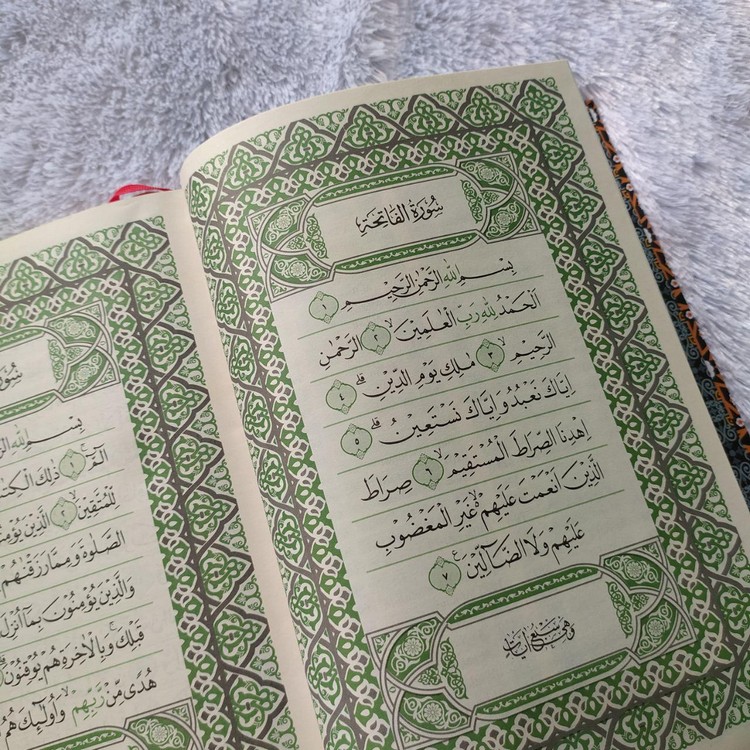 سُورَةُ الْفَاتِحَةِ
بِسْمِ اللهِ الرَّحْمٰنِ الرَّحِيْمِ ١
اَلْحَمْدُ لِلّٰهِ رَبِّ الْعٰلَمِيْنَ ۙ ٢ الرَّحْمٰنِ
الرَّحِيْمِ ۙ ٣ مٰلِكِ يَوْمِ الدِّيْنِ ۗ ٤
اِيَّاكَ نَعْبُدُ وَاِيَّاكَ نَسْتَعِيْنُ ۗ ٥
اِهْدِنَا الصِّرَاطَ الْمُسْتَقِيْمَ ۙ ٦ صِرَاطَ
الَّذِيْنَ اَنْعَمْتَ عَلَيْهِمْ ۙ غَيْرِ الْمَغْضُوْبِ
عَلَيْهِمْ وَلَا الضَّاۤلِّيْنَ ࣖ ٧
وَهِيَ سَبْعُ اٰيَاتٍ
بِسْمِ اللهِ
الۤمّۤ ۚ ١ ذٰلِكَ
لِّلْمُتَّقِيْنَ ۙ ٢ الَّذِيْنَ
الصَّلٰوةَ وَمِمَّا رَزَقْنٰهُمْ
وَالَّذِيْنَ يُؤْمِنُوْنَ بِمَآ اُنْزِلَ
قَبْلِكَ ۚ وَبِالْاٰخِرَةِ هُمْ يُوْقِنُوْنَ
هُدًى مِّنْ رَّبِّهِمْ ۙ وَاُولٰۤىِٕكَ هُمُ